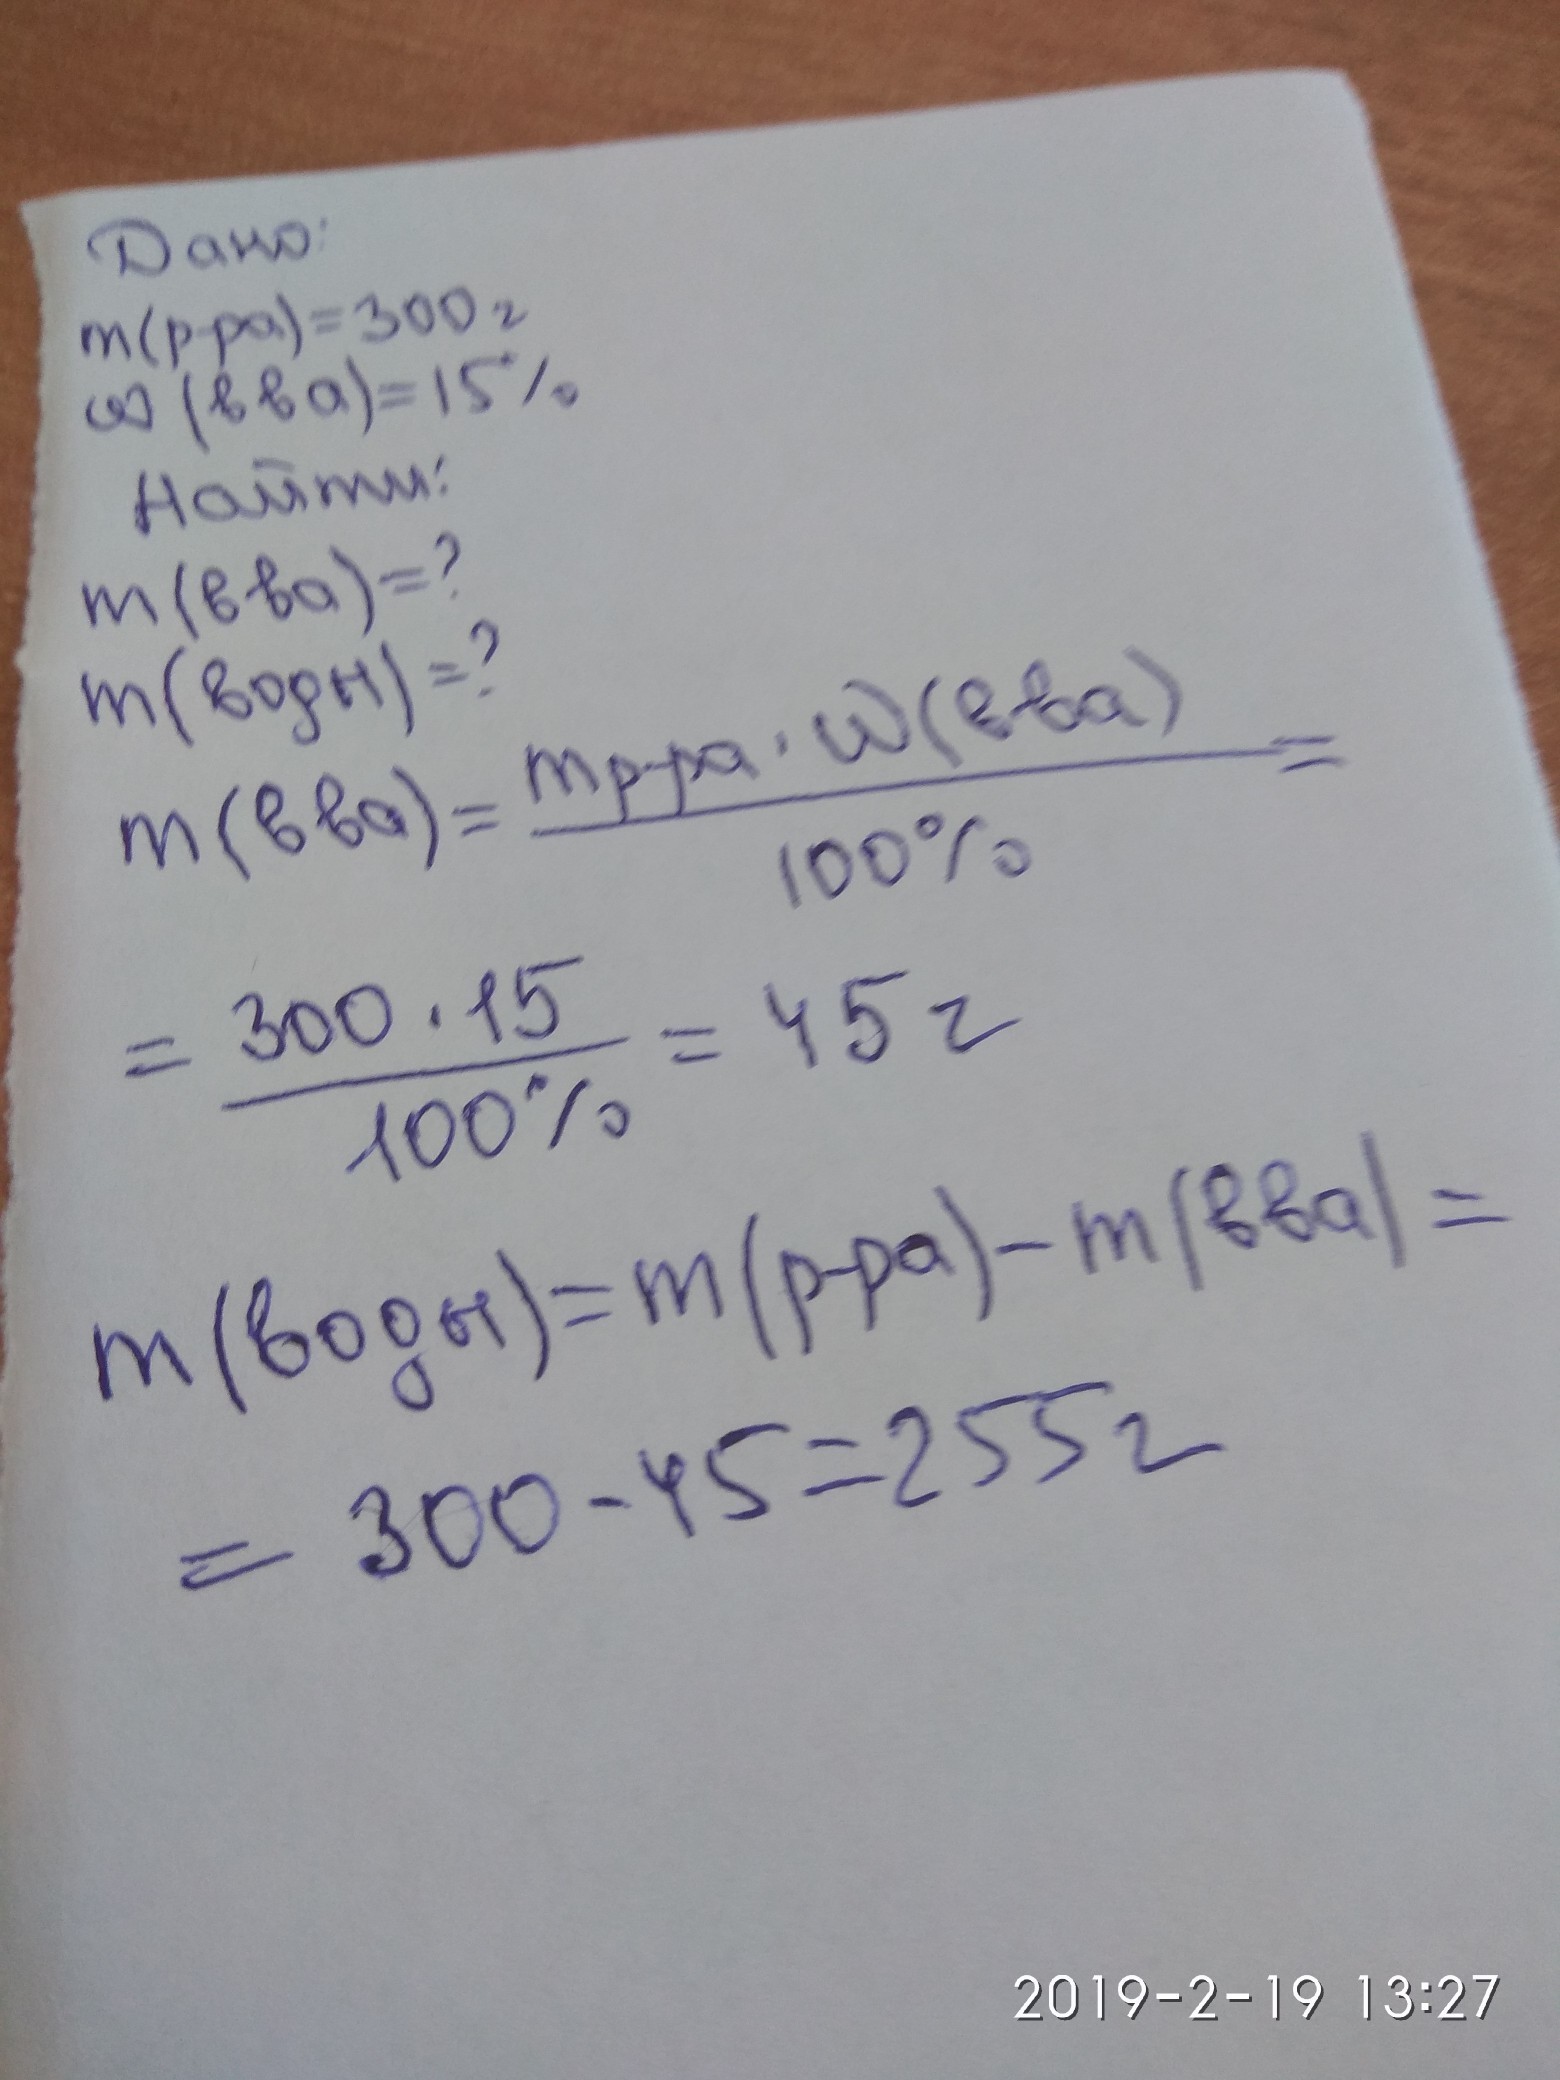 Дано:
m(р-ра)=300г
ω(в-ва)=15%
Найти:
m(в-ва)=?
m(воды)=?
m(в-ва)=mр-ра·ω(в-ва)/100%=
=300·15/100%=45г
m(воды)=m(р-ра)-m(в-ва)=
=300-45=255г
2019-2-19 13:27